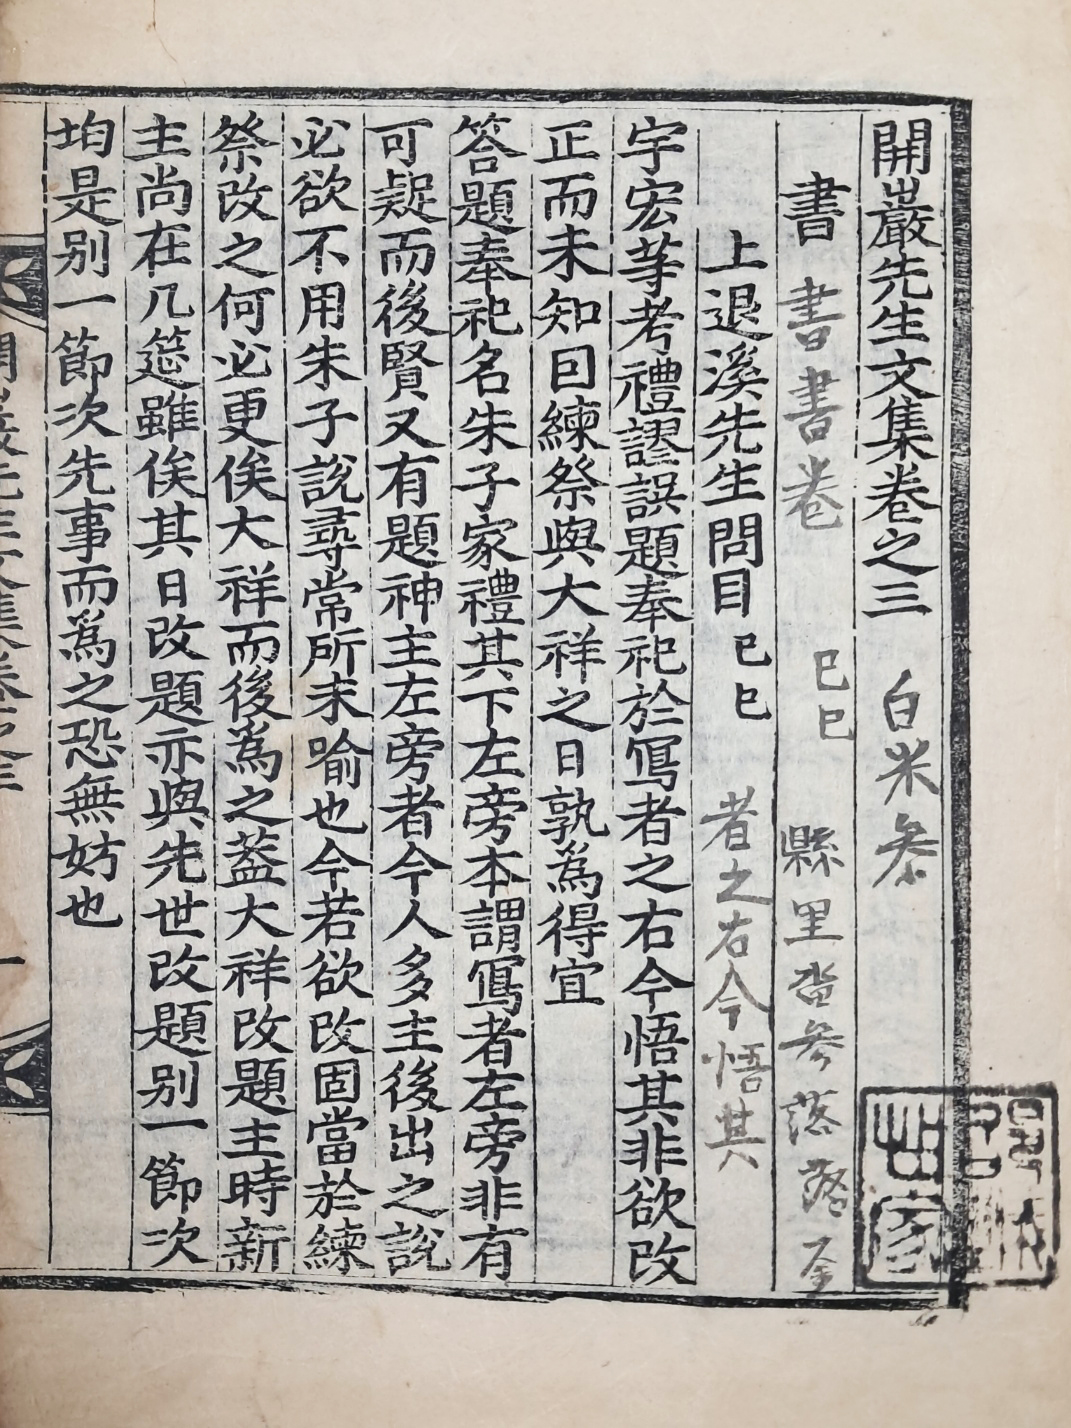 開巖先生文集卷之三 白米叅
書 書書卷 己巳 縣里畓參落落
上退溪先生問目 己巳 者之右今悟其
宇宏等考禮謬誤題奉祀於寫者之右今悟其非欲改
正而未知囙練祭與大祥之日孰為得宜
答題奉祀名朱子家禮其下左旁本謂寫者左旁非有
可疑而後賢又有題神主左旁者今人多主後出之說
必欲不用朱子說尋常所未喻也今若欲改固當於練
祭改之何必更俟大祥而後為之蓋大祥改題主時新
主尚在几筵雖俟其日改題亦與先世改題别一節次
均是别一節次先事而為之恐無妨也